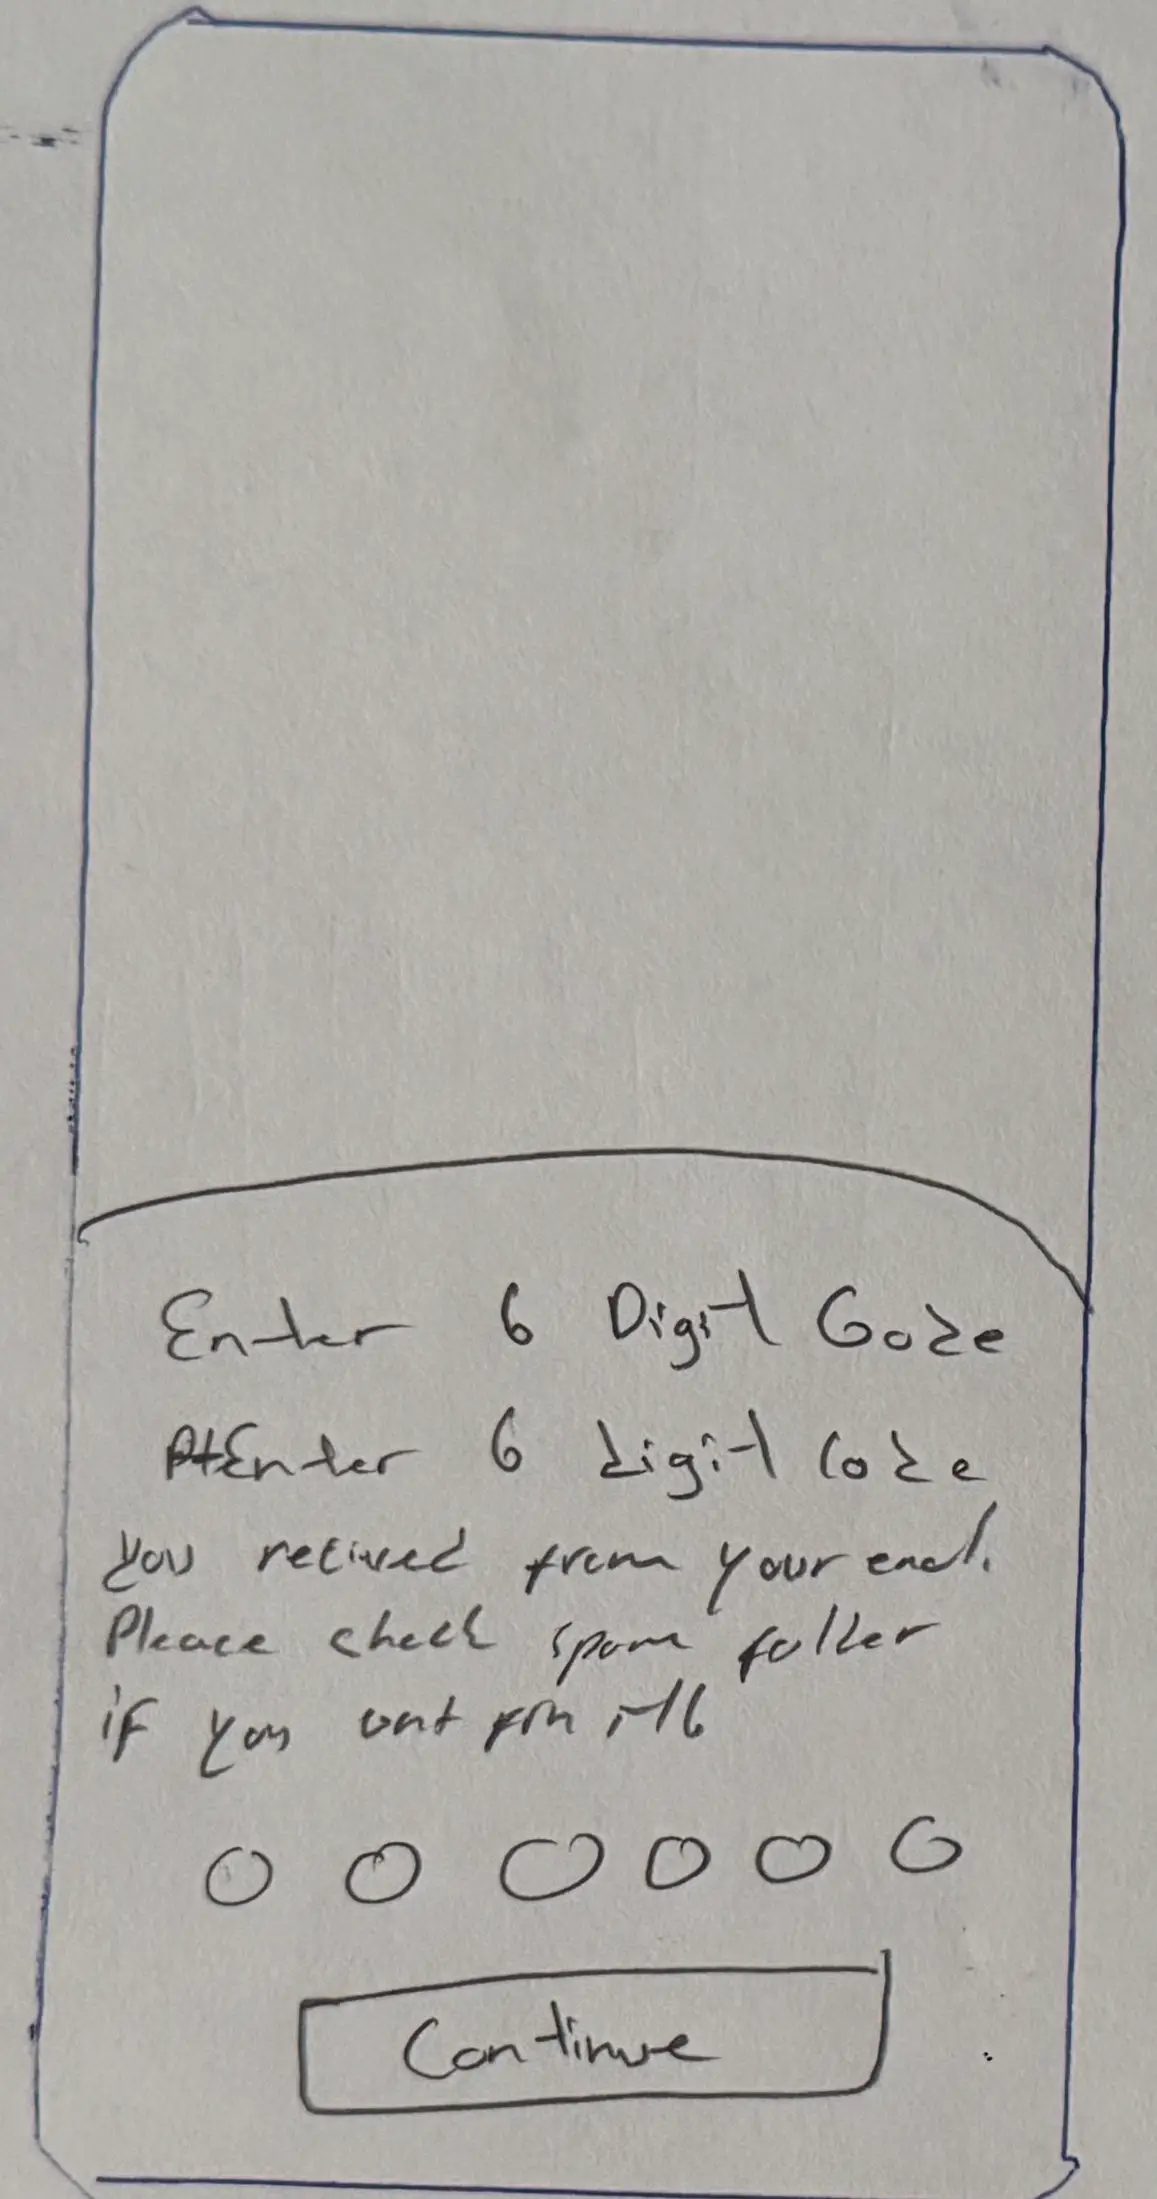 Enter 6 Digit Code
Enter 6 digit code
you recived from your email.
Please check spam folder
if you
Continue